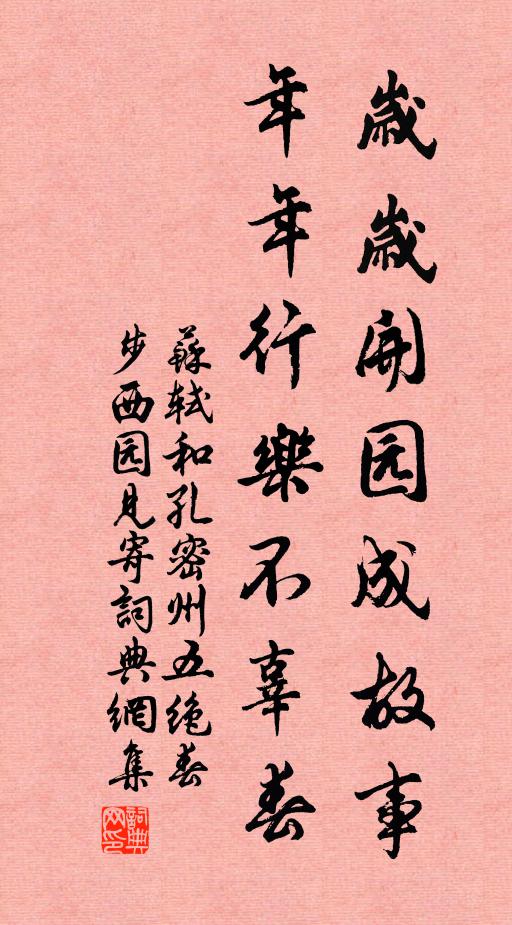 歲歲開园成故事
年年行樂不辜春
蘇軾和孔密州五絶春
步西园見寄詞典網集
詞典网印